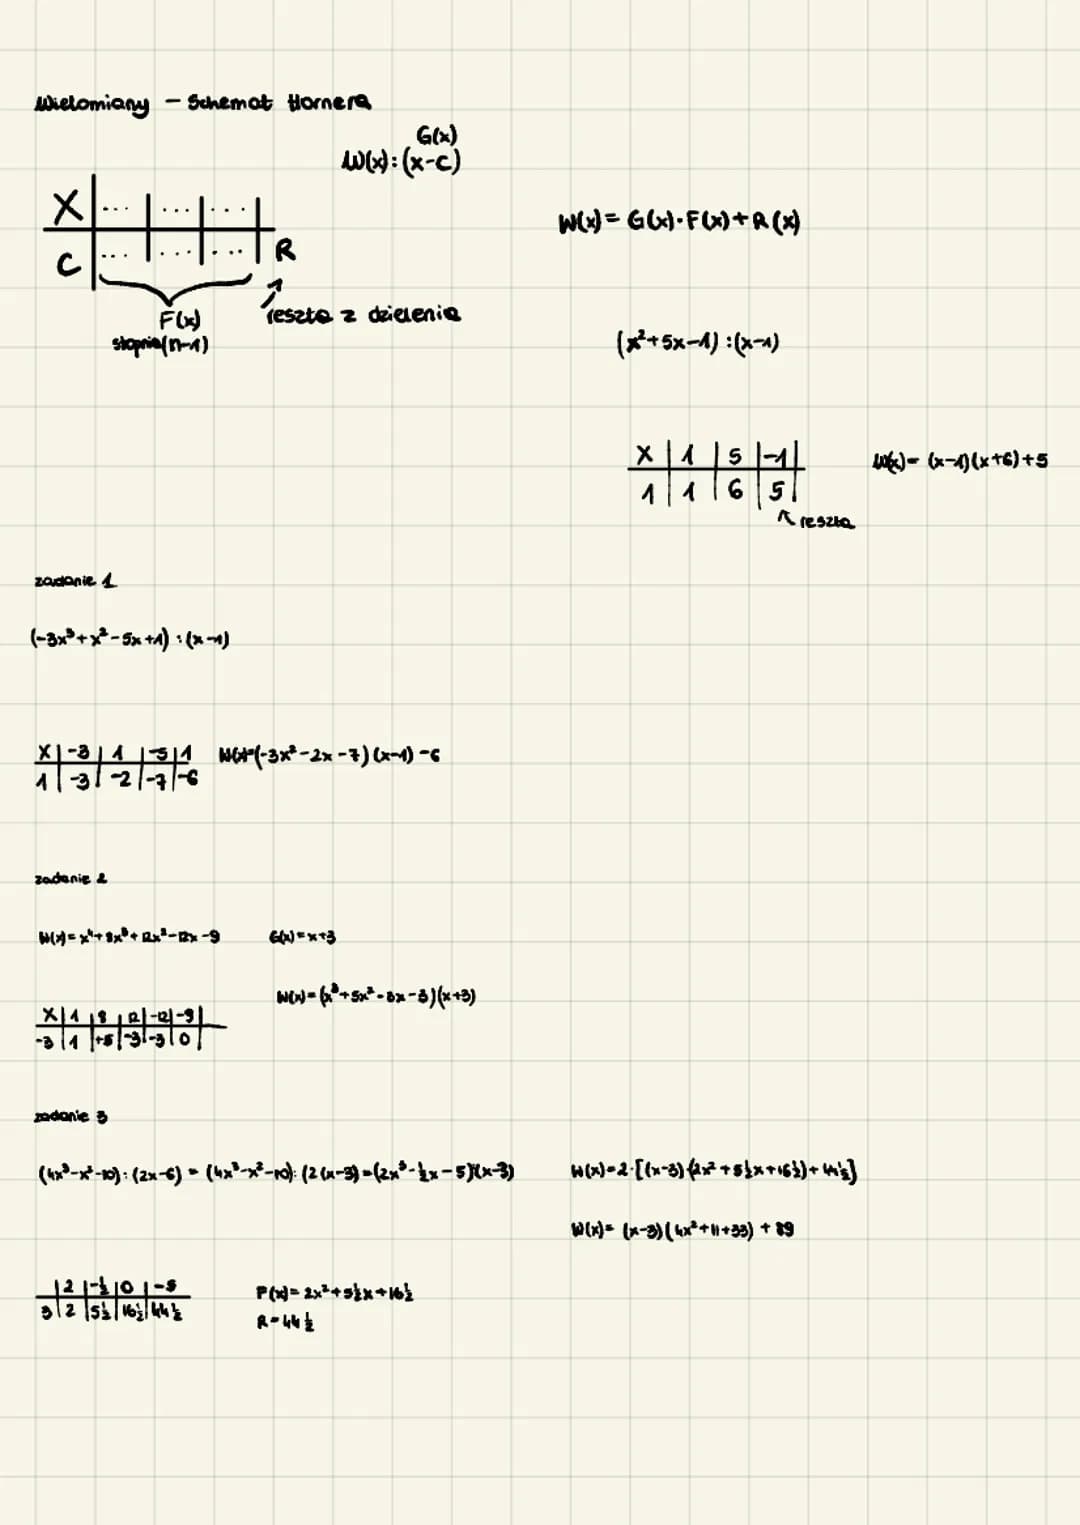 Wielomiany - Schemat Hornera
G(x)
W(x):(x-c)
X | ... | ... | ... |
C | ... | ... | ... | R
F(x)
stopnia(n-1)
reszta z dzielenia
W(x)= G(x)·F(x)+R(x)
(x²+5x-1):(x-1)
X | 1 | 5 | -1 |
1 | 1 | 6 | 5 |
reszta
W(x)= (x-1)(x+6)+5
zadanie 1
(-3x³+x²-5x+1):(x-1)
X | -3 | 1 | -5 | 1
1 | -3 | -2 | -7 | -6
W(x)=(-3x²-2x-7)(x-1)-6
zadanie 2
W(x)= x⁴+8x³+12x²-12x-9
G(x)=x+3
W(x)=(x³+5x²-3x-3)(x+3)
X | 1 | 8 | 12 | -12 | -9 |
-3 | 1 | +5 | -3 | -3 | 0 |
zadanie 3
(4x³-x²-10):(2x-6) = (4x³-x²-10):(2(x-3)=(2x³-½x-5):(x-3)
W(x)=2·[(x-3)(2x²+5½x+16½)+44½]
W(x)= (x-3)(4x²+11+33)+89
| 2 | -½ | 0 | -5
3 | 2 | 5½ | 16½ | 44½
F(x)= 2x²+5½x+16½
R=44½